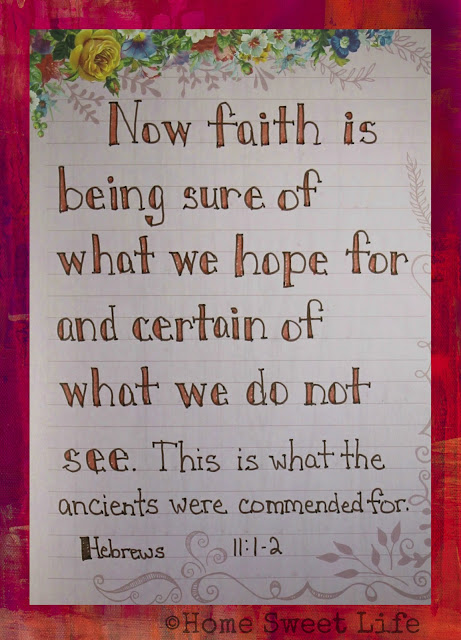 Now faith is
being sure of
what we hope for
and certain of
what we do not
see. This is what the
ancients were commended for.
Hebrews 11:1-2
©Home Sweet Life